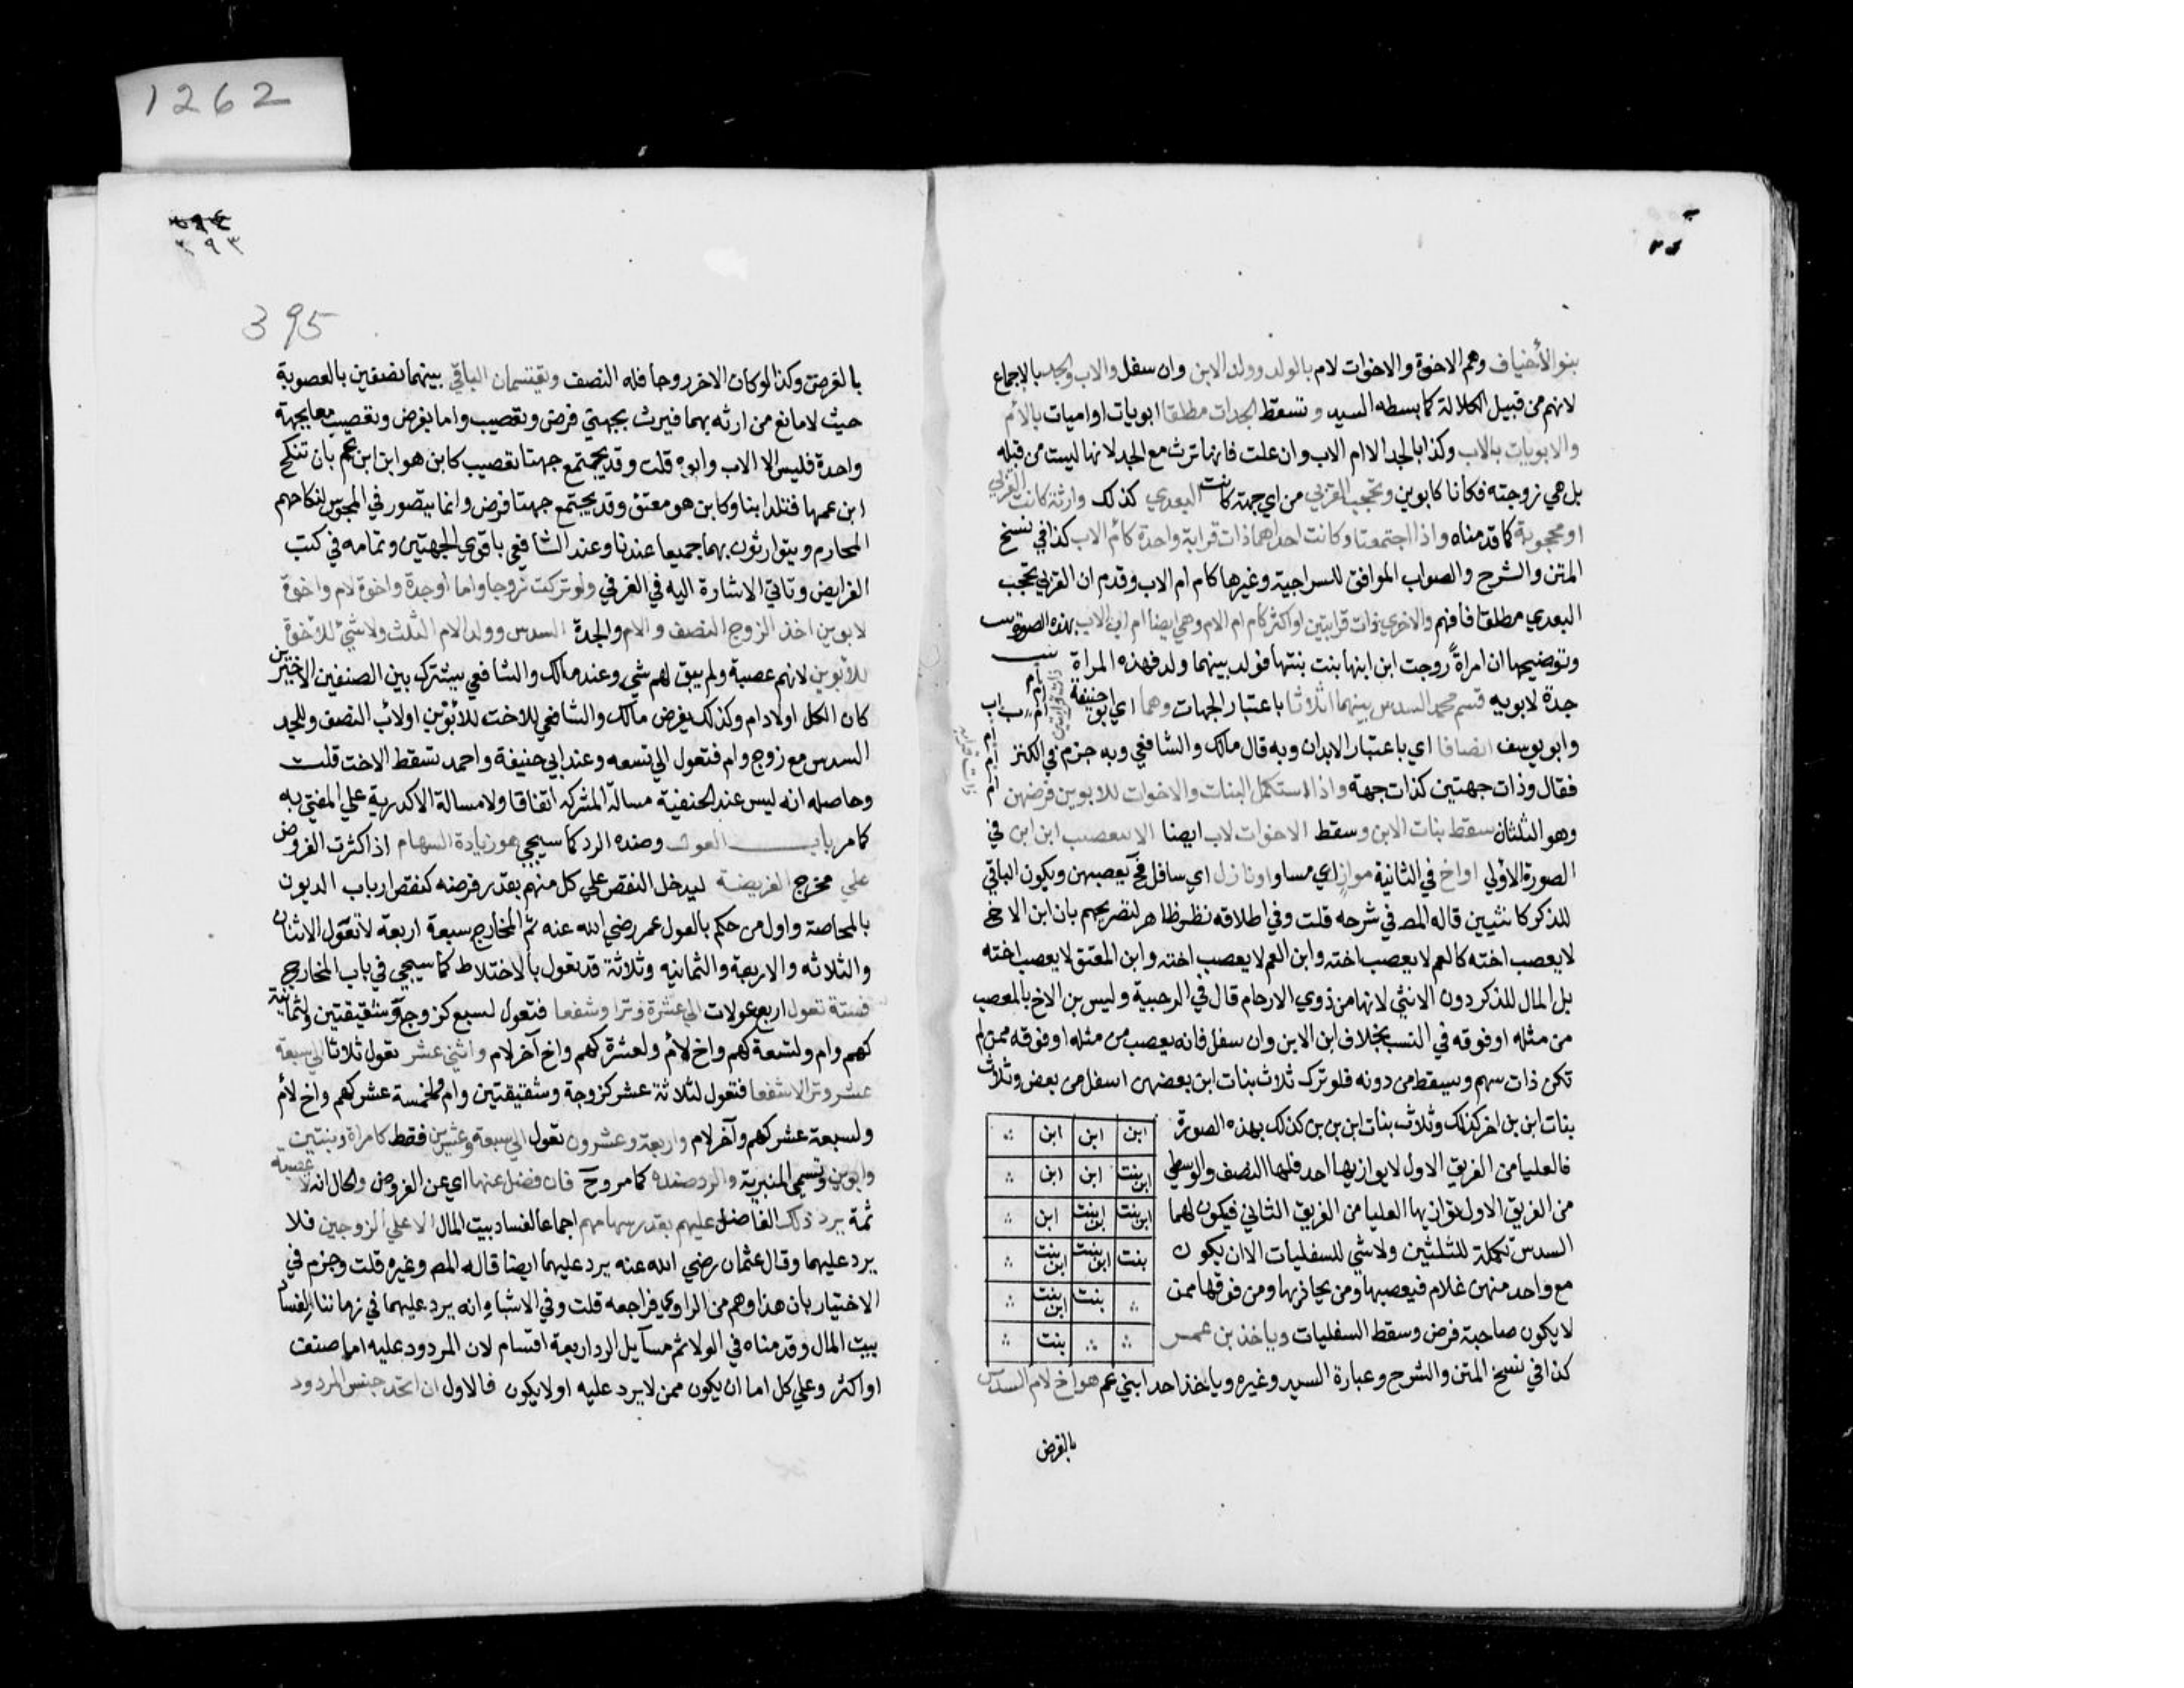 1262
بنو الأخياف وهم الاخوة والاخوات لام بالولد وولد الابن وان سفل والاب والجد بالاجماع
لانهم من قبيل الكلالة كما بسطه السيد وتسقط الجدات مطلقا ابويات او اميات بالام
والابويات بالاب وكذا بالجد الا ام الاب وان علت فانها ترث مع الجد لانها ليست من قبله
بل هي زوجته فكانا كابوين وتحجب القربي من اي جهة كانت البعدي كذلك وارثة كانت القربي
او محجوبة كما قدمناه واذا اجتمعتا وكانت احداهما ذات قرابة واحدة كام ام الاب كذا في نسخ
المتن والشرح والصواب الموافق للسراجية وغيرها كام ام الاب وقدم ان القربي تحجب
البعدي مطلقا فافهم والاخري ذات قرابتين او اكثر كام ام الام وهي ايضا ام اب الاب بهذه الصورة
وتوضيحها ان امراة زوجت ابن ابنها بنت بنتها فولد بينهما ولد فهذه المراة
جدة لابويه قسم محمد السدس بينهما اثلاثا باعتبار الجهات وهما اي ابو حنيفة
وابو يوسف انصافا اي باعتبار الابدان وبه قال مالك والشافعي وبه جزم في الكنز
فقال وذات جهتين كذات جهة واذا استكمل البنات والاخوات لابوين فرضهن
وهو الثلثان سقط بنات الابن وسقط الاخوات لاب ايضا الا بتعصيب ابن ابن في
الصورة الاولي او اخ في الثانية مواز اي مساو او نازل اي سافل فح يعصبهن ويكون الباقي
للذكر كانثيين قاله المص في شرحه قلت وفي اطلاقه نظر ظاهر لتصريحهم بان ابن الاخ
لا يعصب اخته كالعم لا يعصب اخته وابن العم لا يعصب اخته وابن المعتق لا يعصب اخته
بل المال للذكر دون الانثي لانها من ذوي الارحام قال في الرحبية وليس بن الاخ بالمعصب
من مثله او فوقه في النسب بخلاف ابن الابن وان سفل فانه يعصب من مثله او فوقه ممن لم
تكن ذات سهم ويسقط من دونه فلو ترك ثلاث بنات ابن بعضهن اسفل من بعض وثلاث
بنات ابن بن اخر كذلك وثلاث بنات ابن بن بن كذلك بهذه الصورة
فالعليا من الفريق الاول لا يوازيها احد فلها النصف والوسطي
من الفريق الاول توازيها العليا من الفريق الثاني فيكون لهما
السدس تكملة للثلثين ولا شي للسفليات الا ان يكون
مع واحد منهن غلام فيعصبها ومن يحاذيها ومن فوقها ممن
لا يكون صاحبة فرض وسقط السفليات وياخذ بن عم
كذا في نسخ المتن والشرح وعبارة السيد وغيره وياخذ احد ابني عم هو اخ لام السدس
ابن ابن ابن
ابن بنت ابن ابن
ابن بنت ابن بنت ابن
بنت ابن بنت ابن بنت
بنت ابن بنت
بنت
بالفرض
٣٩٣
395
بالفرض وكذا لو كان الاخر زوجا فله النصف ويقتسمان الباقي بينهما نصفين بالعصوبة
حيث لا مانع من ارثه بهما فيرث بجهتي فرض وتعصيب واما بفرض وتعصيب معا بجهة
واحدة فليس الا الاب وابوه قلت وقد يجتمع جهتا تعصيب كابن هو ابن ابن عم بان تنكح
ابن عمها فتلد ابنا وكابن هو معتق وقد يجتمع جهتا فرض وانما يتصور في المجوس لنكاحهم
المحارم ويتوارثون بهما جميعا عندنا وعند الشافعي باقوي الجهتين وتمامه في كتب
الفرايض وتاتي الاشارة اليه في الغرقي ولو تركت زوجا واما او جدة واخوة لام واخوة
لابوين اخذ الزوج النصف والام والجدة السدس وولد الام الثلث ولا شيء للاخوة
للابوين لانهم عصبة ولم يبق لهم شي وعند مالك والشافعي يشترك بين الصنفين الاخيرين
كان الكل اولاد ام وكذلك يفرض مالك والشافعي للاخت للابوين او لاب النصف وللجد
السدس مع زوج وام فتعول الي تسعه وعند ابي حنيفة واحمد تسقط الاخت قلت
وحاصله انه ليس عند الحنفية مسالة المشركه اتفاقا ولا مسالة الاكدرية علي المفتي به
كما مر باب العول وضده الرد كما سيجي هو زيادة السهام اذا كثرت الفروض
علي مخرج الفريضة ليدخل النقص علي كل منهم بقدر فرضه كنقص ارباب الديون
بالمحاصة واول من حكم بالعول عمر رضي الله عنه ثم المخارج سبعة اربعة لا تعول الاثنان
والثلاثه والاربعة والثمانيه وثلاثة قد تعول بالاختلاط كما سيجي في باب المخارج
فستة تعول اربع عولات الي عشرة وترا وشفعا فتعول لسبع كزوج وشقيقتين ولثمانية
كهم وام ولتسعة كهم واخ لأم ولعشرة كهم واخ آخر لام واثني عشر تعول ثلاثا الي سبعة
عشر وترا لا شفعا فتعول لثلاثة عشر كزوجة وشقيقتين وام ولخمسة عشر كهم واخ لأم
ولسبعة عشر كهم وآخر لام واربعة وعشرون تعول الي سبعة وعشرين فقط كامراة وبنتين
وابوين وتسمي المنبرية والرد ضده كما مر وح فان فضل عنها اي عن الفروض والحال انه لا عصبة
ثمة يرد ذلك الفاضل عليهم بقدر سهامهم اجماعا لفساد بيت المال الا علي الزوجين فلا
يرد عليهما وقال عثمان رضي الله عنه يرد عليهما ايضا قاله المص وغيره قلت وجزم في
الاختيار بان هذا وهم من الراوي فراجعه قلت وفي الاشباه انه يرد عليهما في زماننا لفساد
بيت المال وقدمناه في الولا ثم مسايل الرد اربعة اقسام لان المردود عليه اما صنف
او اكثر وعلي كل اما ان يكون ممن لا يرد عليه او لا يكون فالاول ان اتحد جنس المردود